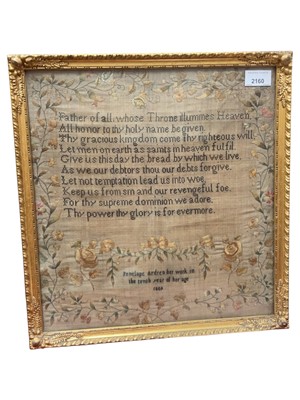 2160
Father of all, whose Throne illumines Heaven,
All honor to thy holy name be given.
Thy gracious kingdom come thy righteous will,
Let men on earth as saints in heaven fulfil.
Give us this day the bread by which we live,
As we our debtors thou our debts forgive.
Let not temptation lead us into woe,
Keep us from sin and our revengeful foe.
For thy supreme dominion we adore,
Thy power thy glory is for evermore.
Penelope her work in
the tenth year of her age